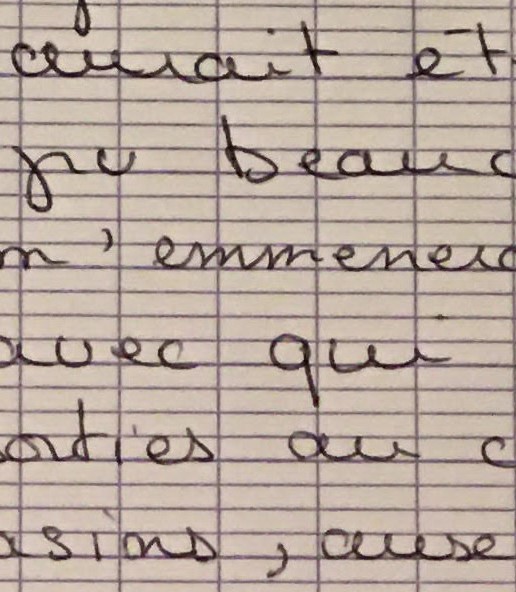 aimait et
pu beauc
m'emmenera
avec qui
orties au c
asions, cause